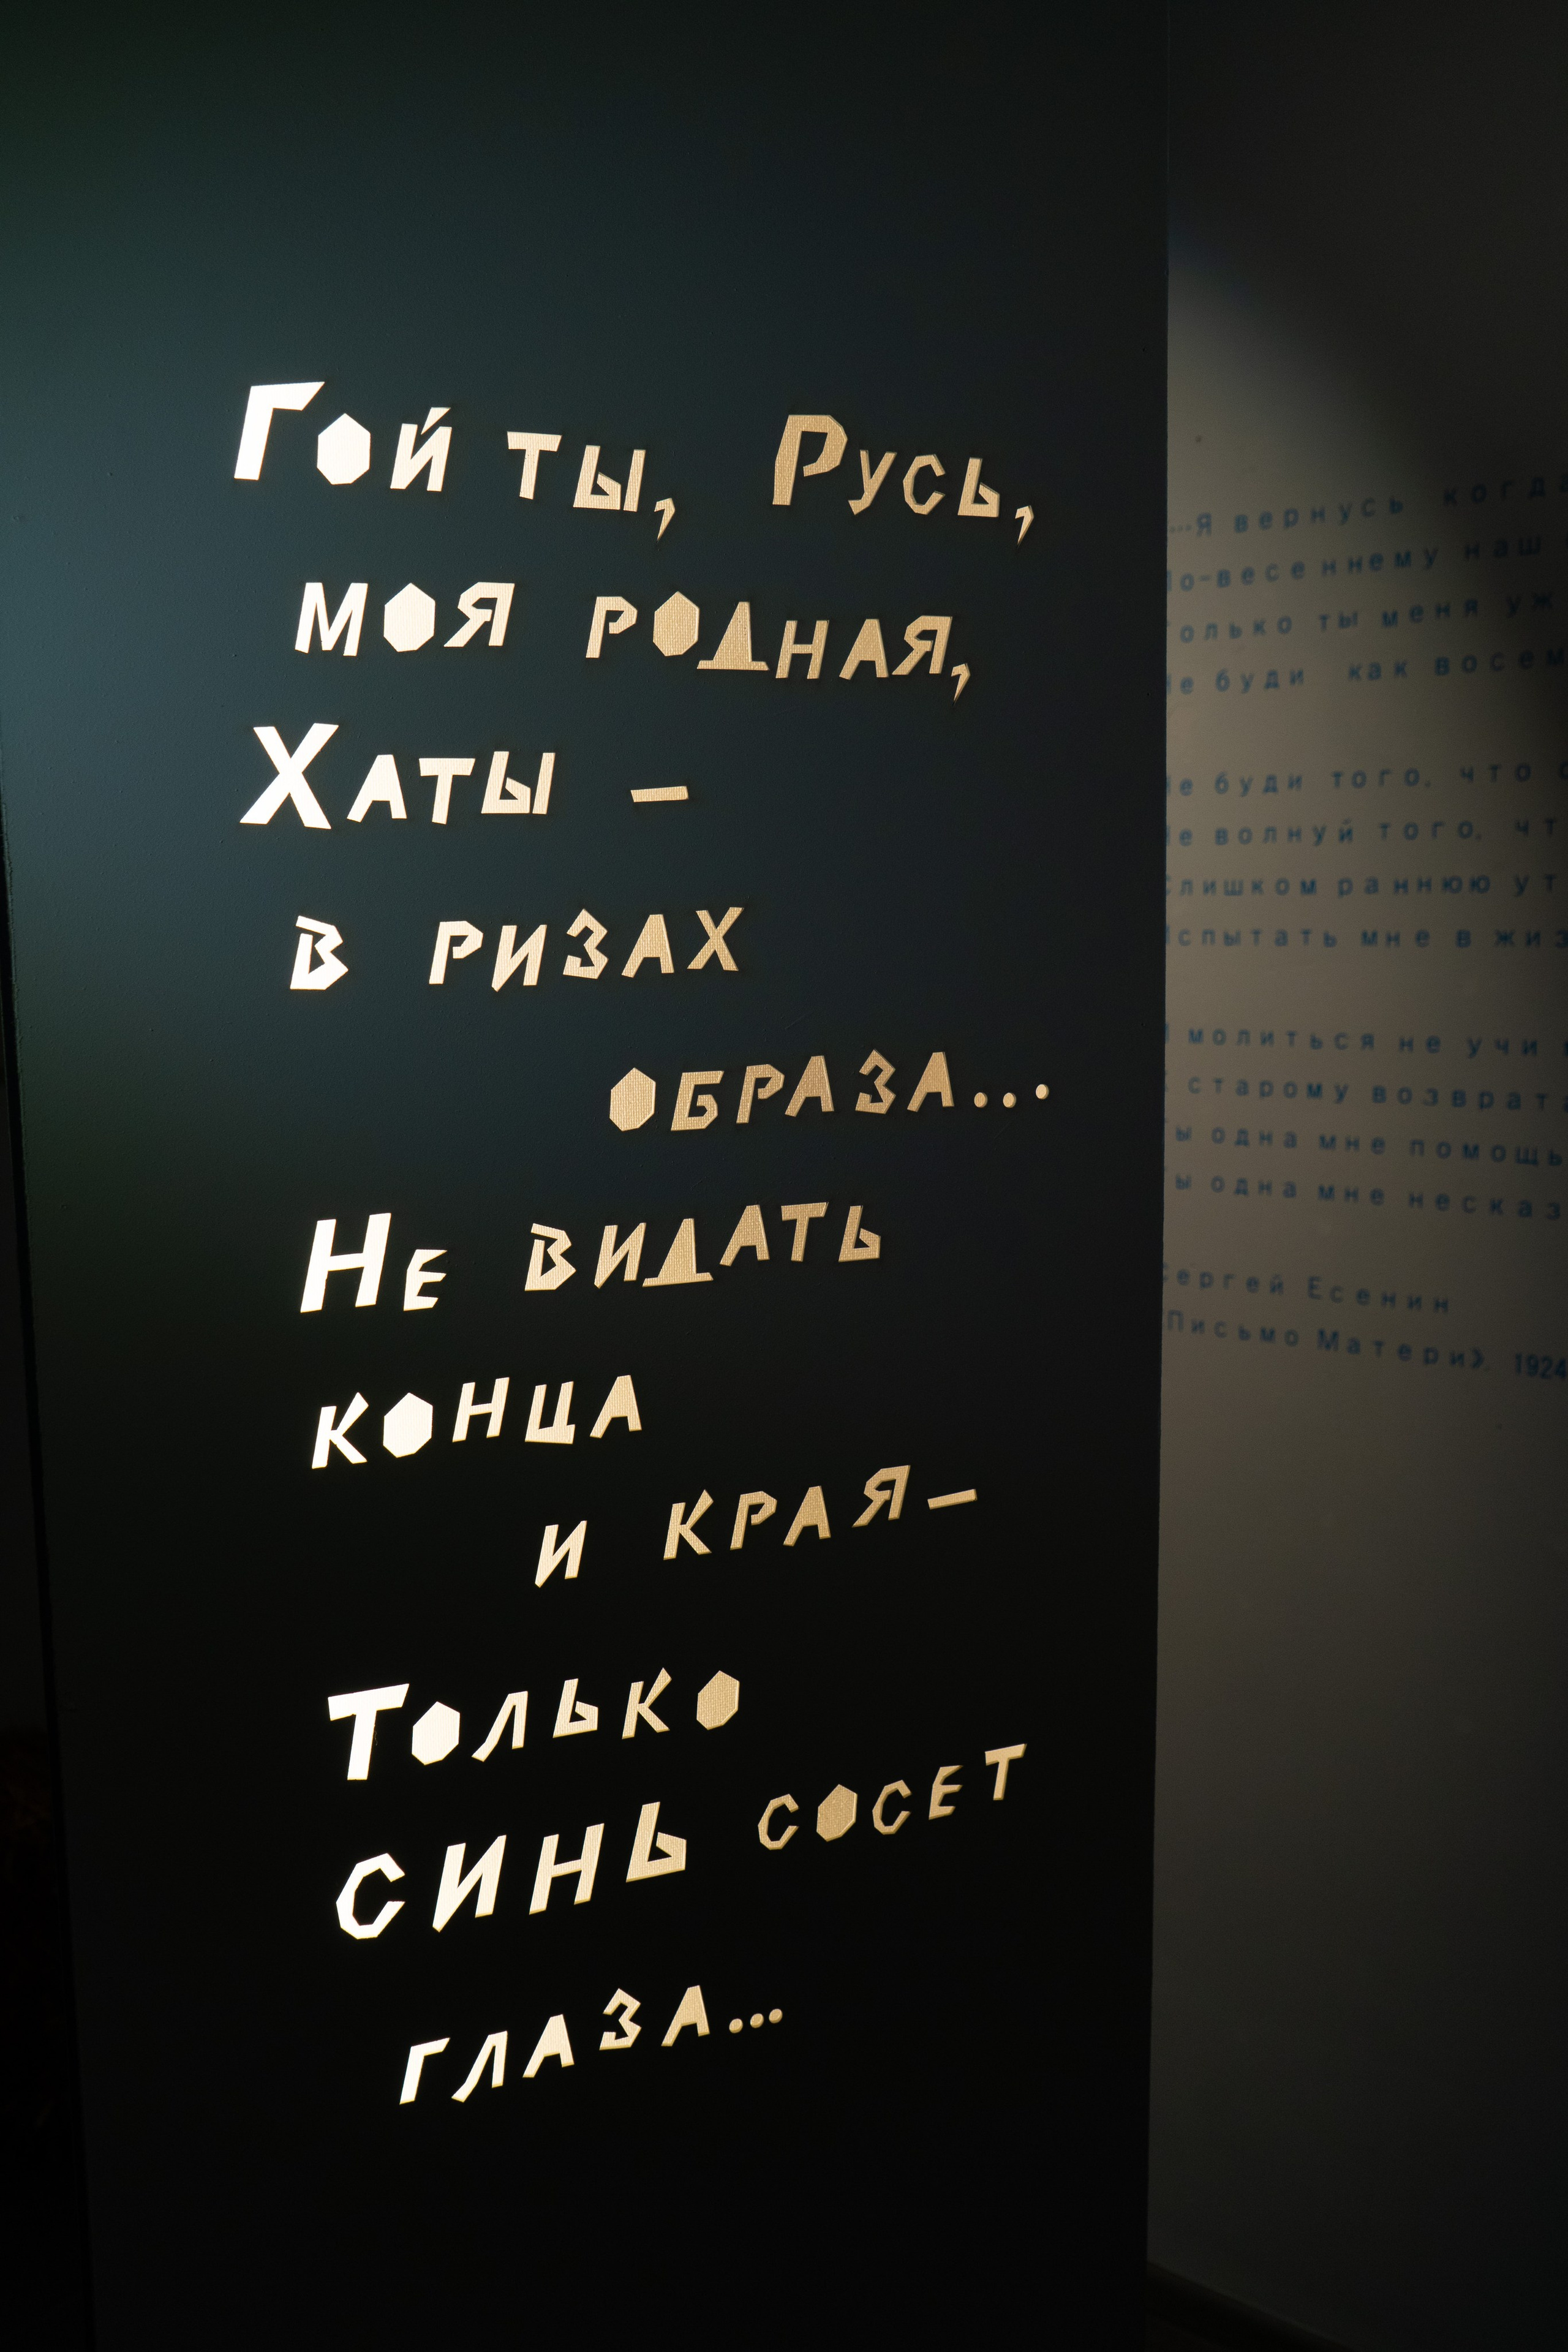 Гой ты, Русь,
моя родная,
Хаты –
в ризах
образа...
Не видать
конца
и края–
Только
синь сосет
глаза...
...Я вернусь когда
по-весеннему наш
только ты меня
Не буди как
Не буди того, что
Не волнуй того,
Слишком раннюю
Испытать мне в
молиться не учи
К старому
Ты одна мне помощь
Ты одна мне
Сергей Есенин
«Письмо Матери», 1924